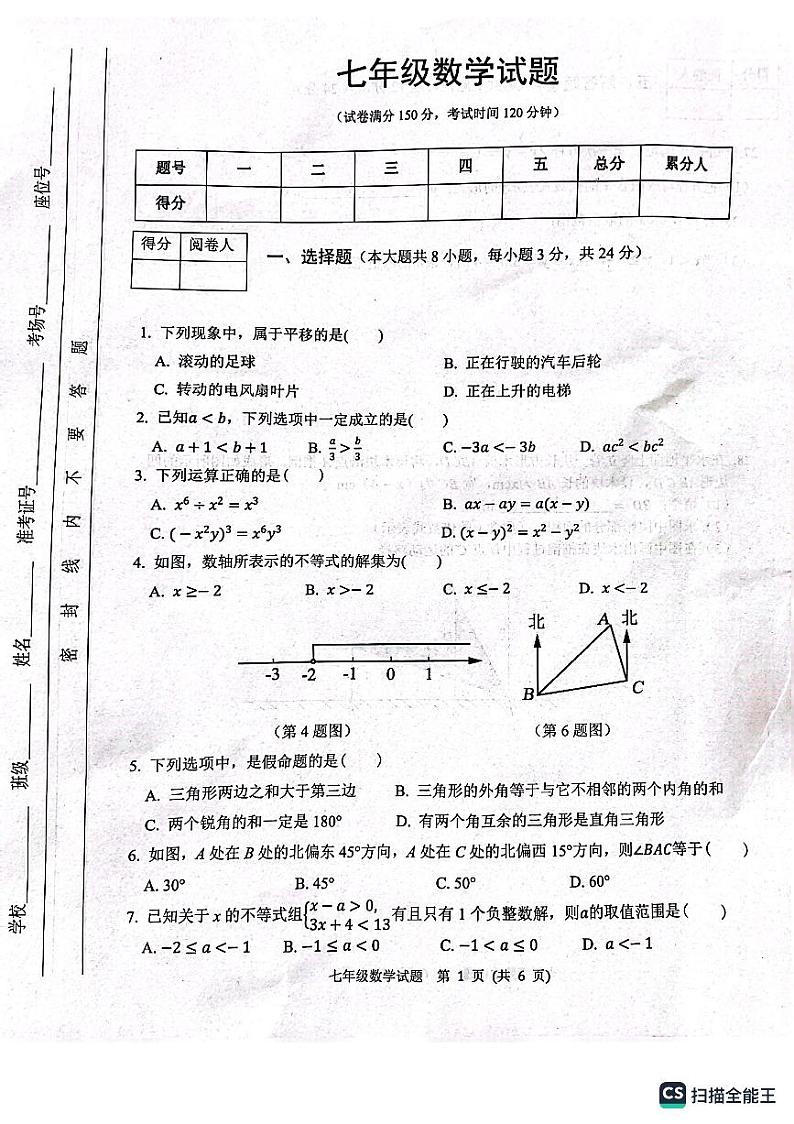 七年级数学试题
(试卷满分 150 分，考试时间 120 分钟)
题号 一 二 三 四 五 总分 累分人
得分
得分 阅卷人
一、选择题（本大题共 8 小题，每小题 3 分，共 24 分）
1. 下列现象中，属于平移的是( )
A. 滚动的足球 B. 正在行驶的汽车后轮
C. 转动的电风扇叶片 D. 正在上升的电梯
2. 已知a < b，下列选项中一定成立的是( )
A. a + 1 < b + 1 B. a/3 > b/3 C. −3a <− 3b D. ac² < bc²
3. 下列运算正确的是( )
A. x⁶ ÷ x² = x³ B. ax − ay = a(x − y)
C. ( − x²y)³ = x⁶y³ D. (x − y)² = x² − y²
4. 如图，数轴所表示的不等式的解集为( )
A. x ≥− 2 B. x >− 2 C. x ≤− 2 D. x <− 2
-3 -2 -1 0 1
北 A 北
B C
（第 4 题图） （第 6 题图）
5. 下列选项中，是假命题的是( )
A. 三角形两边之和大于第三边 B. 三角形的外角等于与它不相邻的两个内角的和
C. 两个锐角的和一定是 180° D. 有两个角互余的三角形是直角三角形
6. 如图，A 处在 B 处的北偏东 45°方向，A 处在 C 处的北偏西 15°方向，则∠BAC等于( )
A. 30° B. 45° C. 50° D. 60°
7. 已知关于 x 的不等式组{x − a > 0, 3x + 4 < 13 有且只有 1 个负整数解，则a的取值范围是( )
A. −2 ≤ a <− 1 B. −1 ≤ a < 0 C. −1 < a ≤ 0 D. a <− 1
七年级数学试题 第 1 页 (共 6 页)
学校 班级 姓名 准考证号 考场号 座位号
密 封 线 内 不 要 答 题
CS 扫描全能王